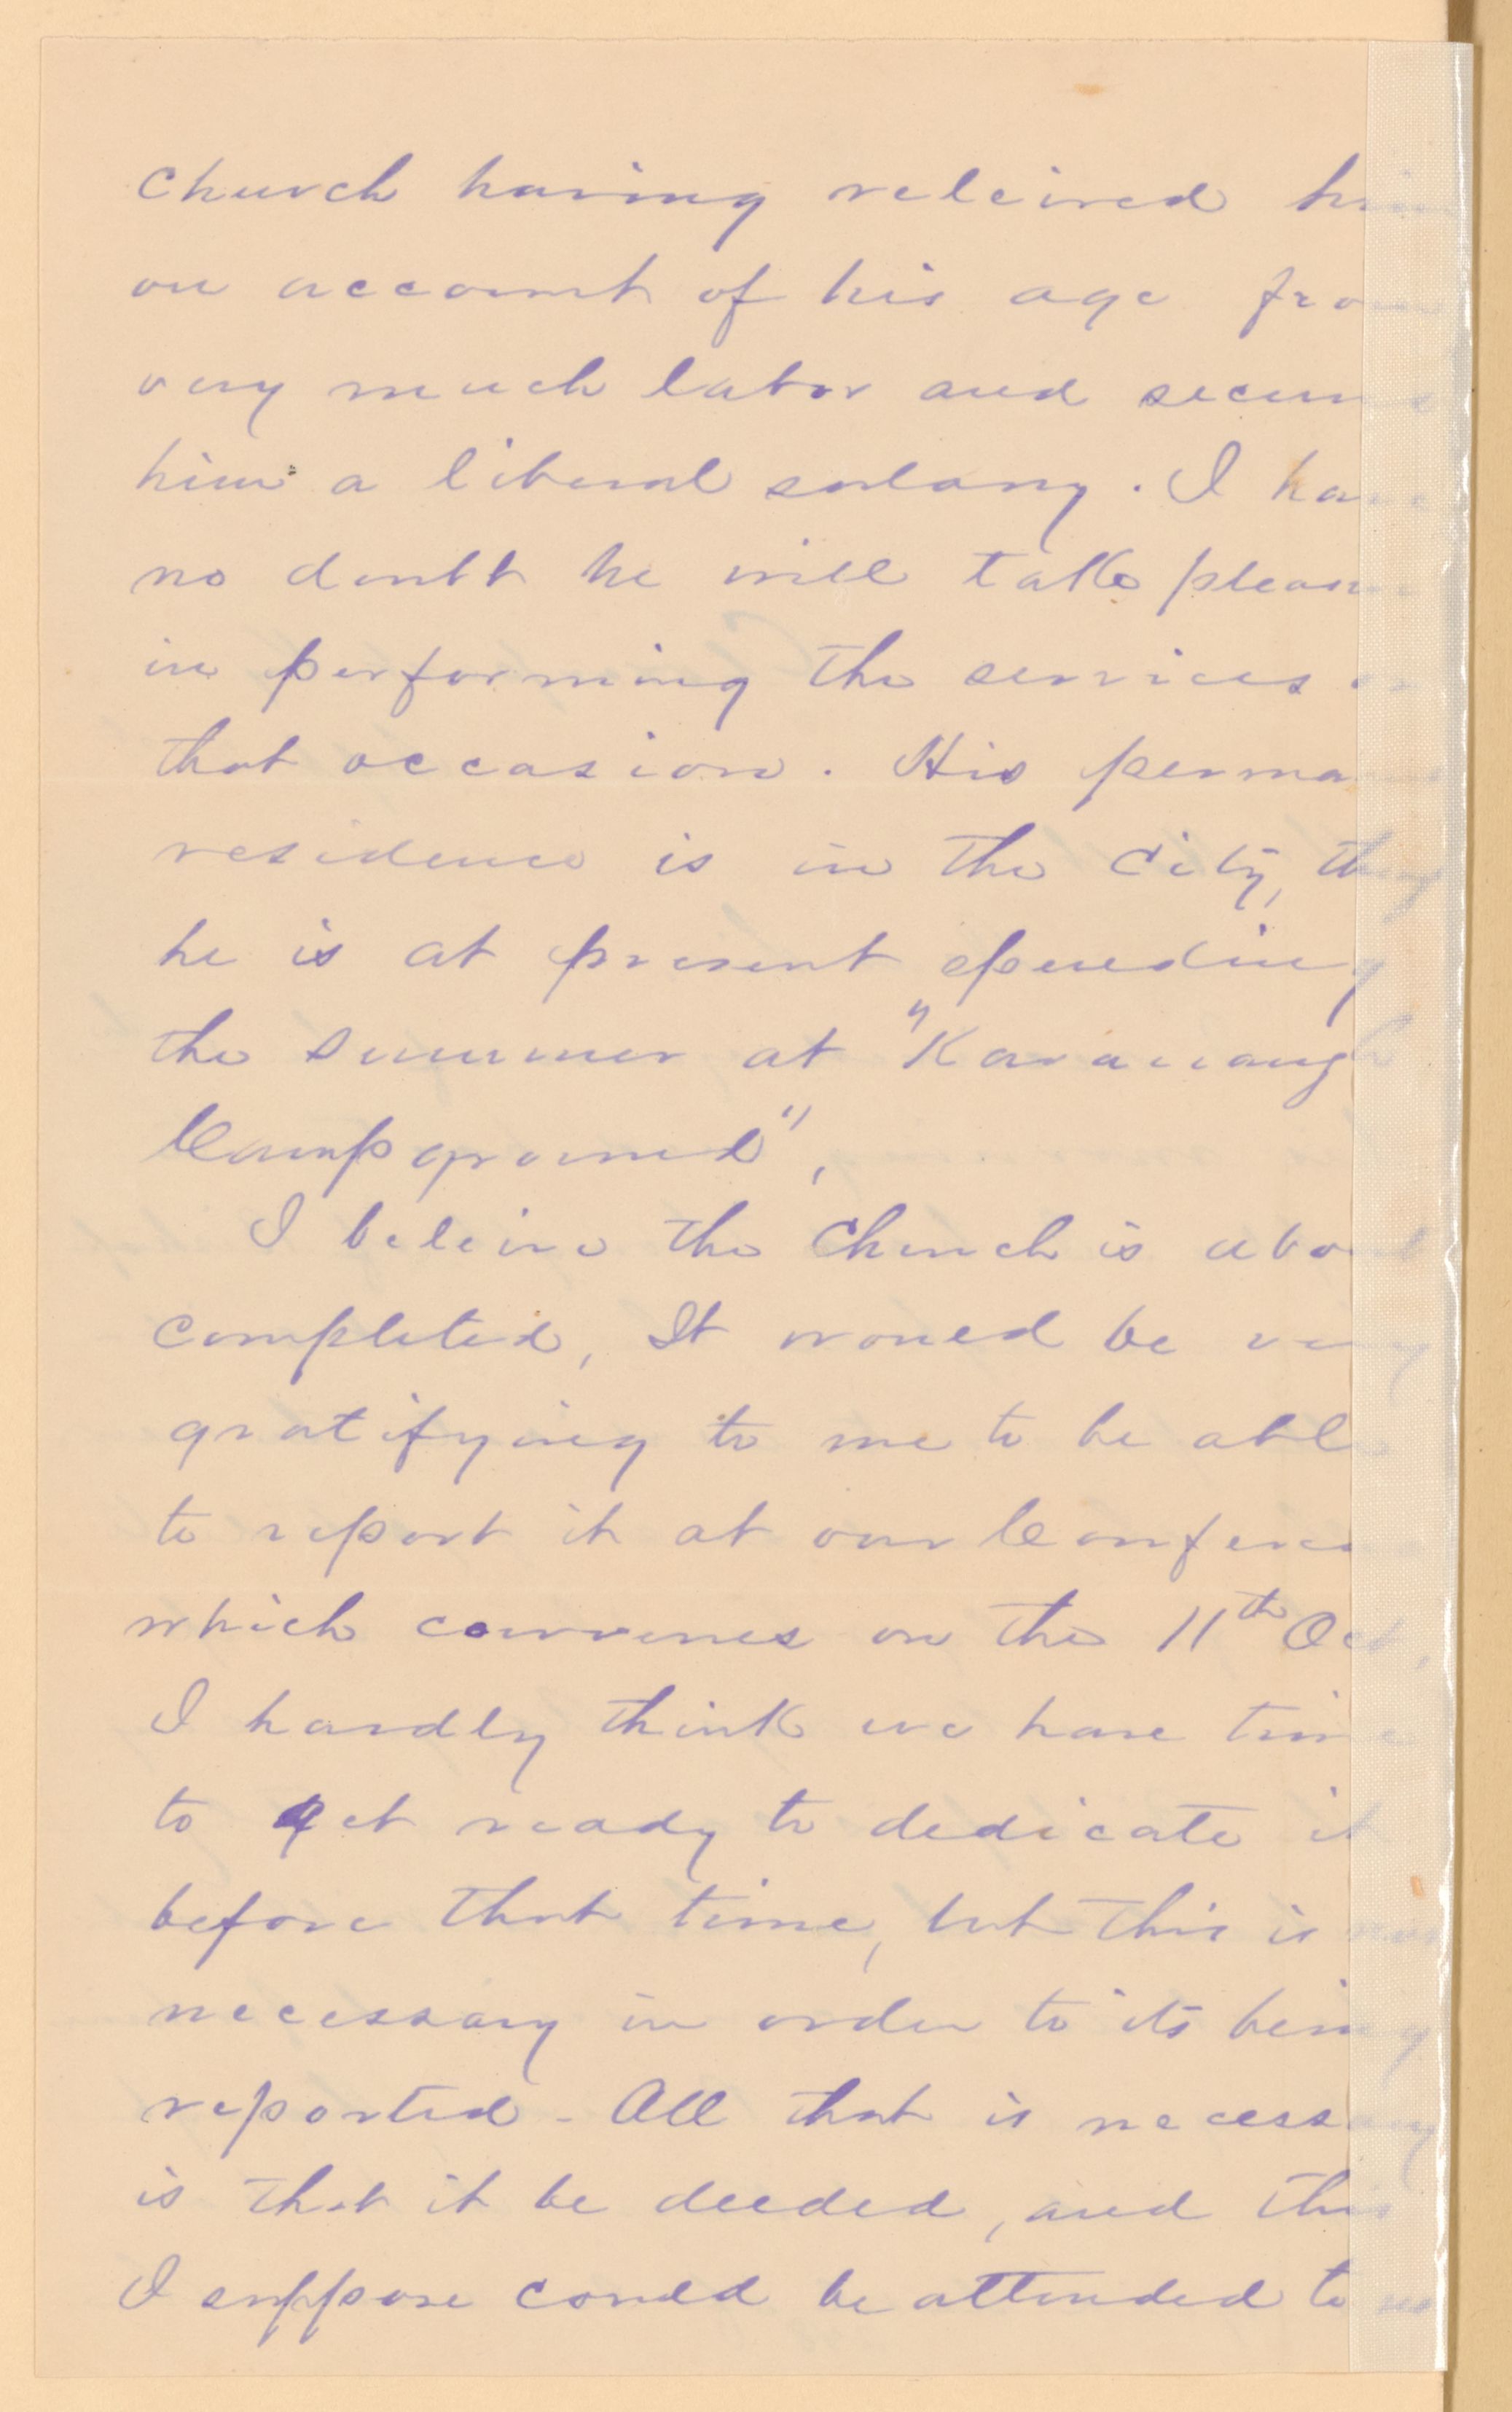 church having releived him
on account of his age from
very much labor and secures
him a liberal salary. I have
no doubt he will take pleasure
in performing the services on
that occasion. His perma
residence is in the City, though
he is at present spending
the summer at "Kavanaugh
Campground",
I beleive the Church is about
completed, It would be very
gratifying to me to be able
to report it at our Conference
which convenes on the 11th Oct,
I hardly think we have time
to get ready to dedicate it
before that time, but this is not
necessary in order to its being
reported - All that is necessary
is that it be deeded, and this
I suppose could be attended to